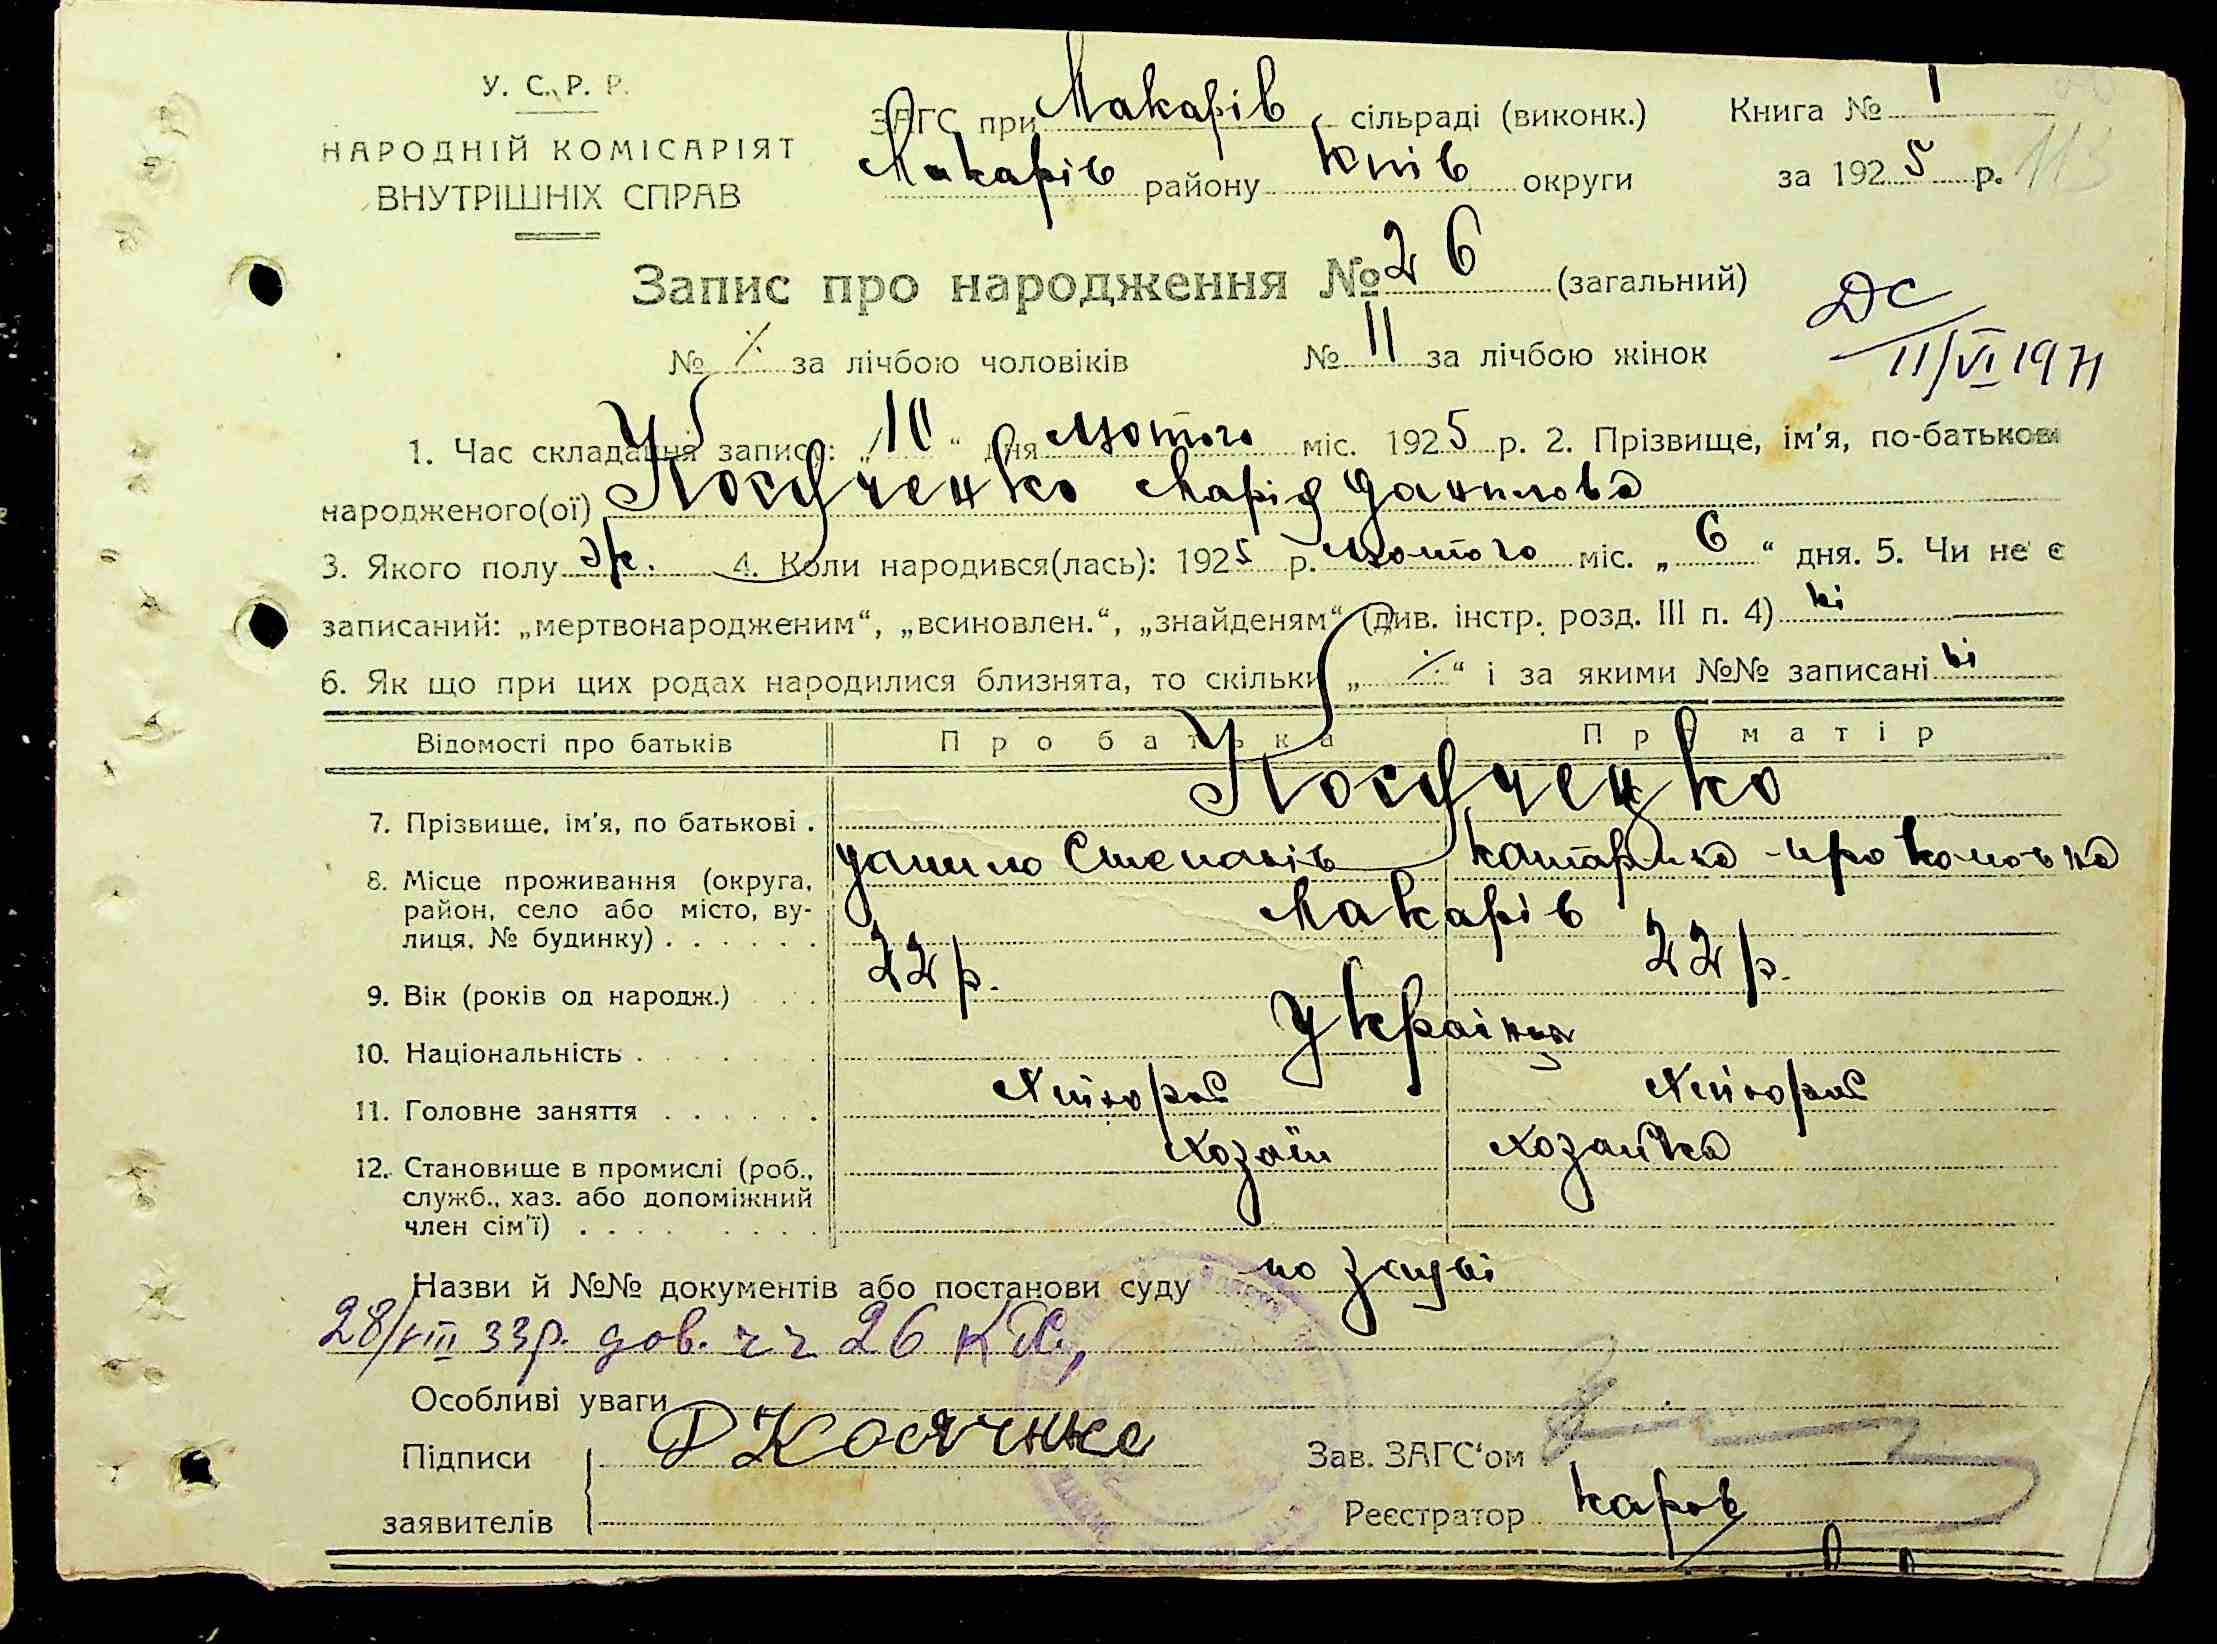 У. С. Р. Р.
НАРОДНІЙ КОМІСАРІЯТ
ВНУТРІШНІХ СПРАВ
ЗАГС при Макарів сільраді (виконк.)
Макарів району Київ округи
Книга № 1
за 1925 р. 113
Запис про народження № 26 (загальний)
№ ./. за лічбою чоловіків № 11 за лічбою жінок
ДС
11/VI 1971
1. Час складання запису: „10“ дня лютого міс. 1925 р. 2. Прізвище, ім'я, по-батькові
народженого(ої) Косяченко Марія Данилова
3. Якого полу ж. 4. Коли народився(лась): 1925 р. лютого міс. „6“ дня. 5. Чи не є
записаний: „мертвонародженим“, „всиновлен.“, „знайденям“ (див. інстр. розд. III п. 4) ні
6. Як що при цих родах народилися близнята, то скільки „./.“ і за якими №№ записані ні
Відомості про батьків Про батька Про матір
7. Прізвище, ім'я, по батькові . Косяченко
Данило Степанів Катарина Прокоповна
8. Місце проживання (округа,
район, село або місто, ву-
лиця, № будинку) . . . . . . Макарів
9. Вік (років од народж.) . . . 22 р. 22 р.
10. Національність . . . . . . . Україн
11. Головне заняття . . . . . . Хлібороб Хлібороб
12. Становище в промислі (роб.,
служб., хаз. або допоміжний
член сім'ї) . . . . . . . . . Хозяїн Хозяйка
Назви й №№ документів або постанови суду по заяві
28/VIII 33р. дов. 26
Особливі уваги
Підписи
заявителів
Д Косяченко
Зав. ЗАГС'ом
Реєстратор